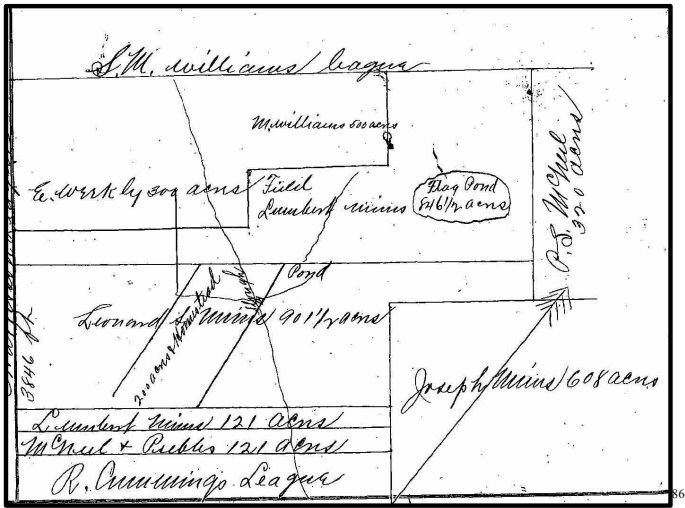 S. M. Williams League
M. Williams 500 acres
E. Werkly 300 acres
Field
Lumbert Mims
Flag Pond
846 1/2 acres
P. S. McNeel
320 acres
Pond
Leonard S. Mims 901 1/2 acres
200 acres Homestead
3846
Joseph Mims 608 acres
Lumbert Mims 121 acres
McNeel & Peebles 121 acres
R. Cummings League
86